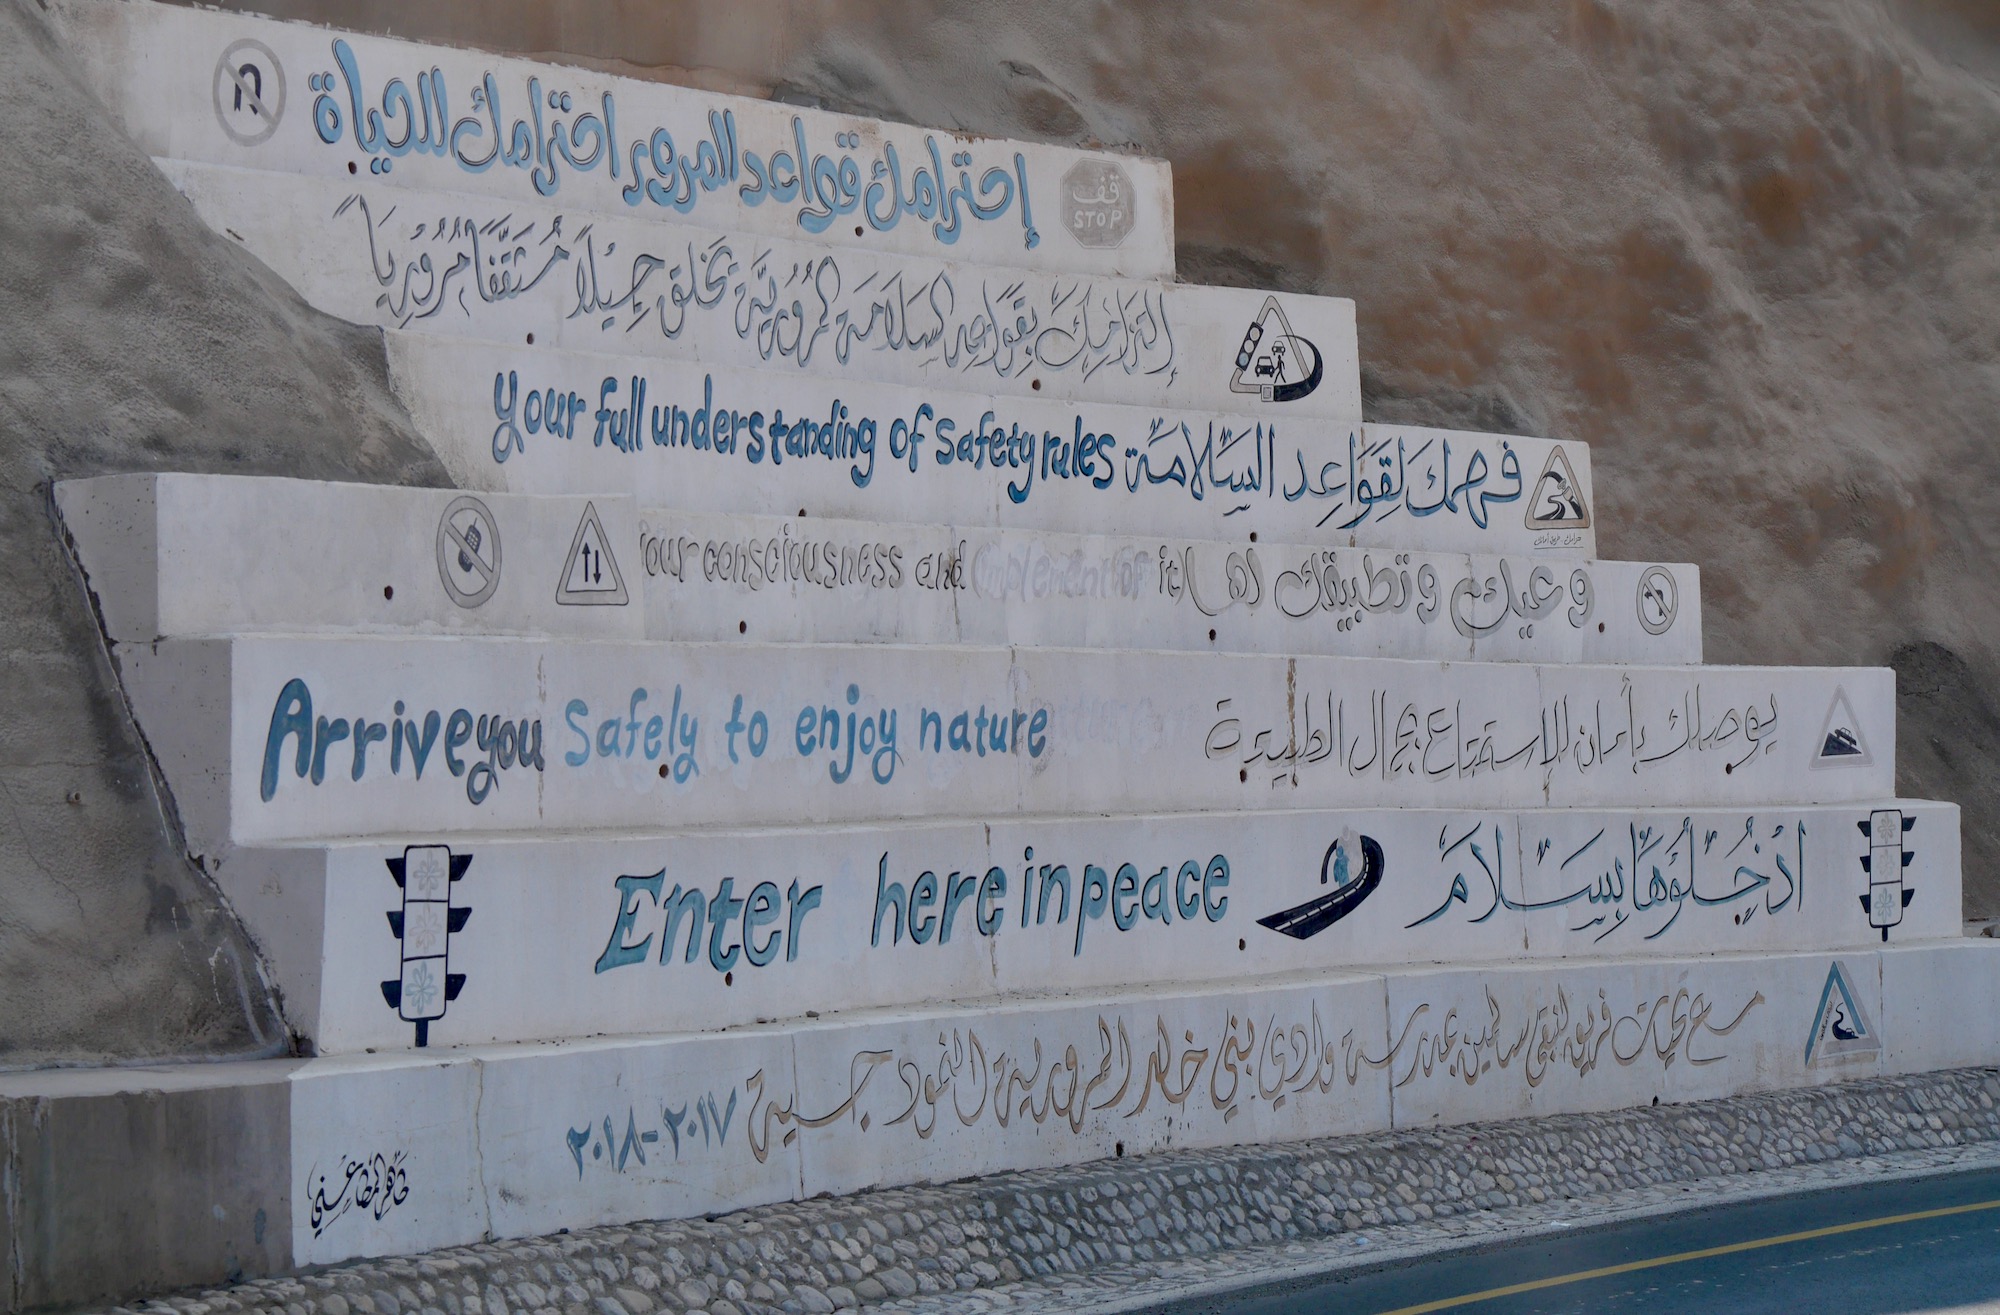 إحترامك قواعد المرور احترامك للحياة
قف
STOP
إلتزامك بقواعد السلامة المرورية يخلق جيلاً مثقفاً مرورياً
your full understanding of safety rules فهمك لقواعد السلامة
your consciousness and (implement of it) وعيك وتطبيقك لها
Arrive you safely to enjoy nature يوصلك بأمان للإستمتاع بجمال الطبيعة
Enter here in peace ادْخُلُوهَا بِسَلَامٍ
مع تحيات فريق لنبقى سالمين بمدرسة وادي بني خالد المرورية النموذجية ٢٠١٧-٢٠١٨